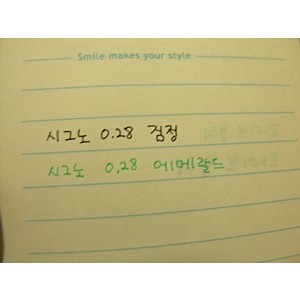 Smile makes your style
시그노 0.28 검정
시그노 0.28 에메랄드